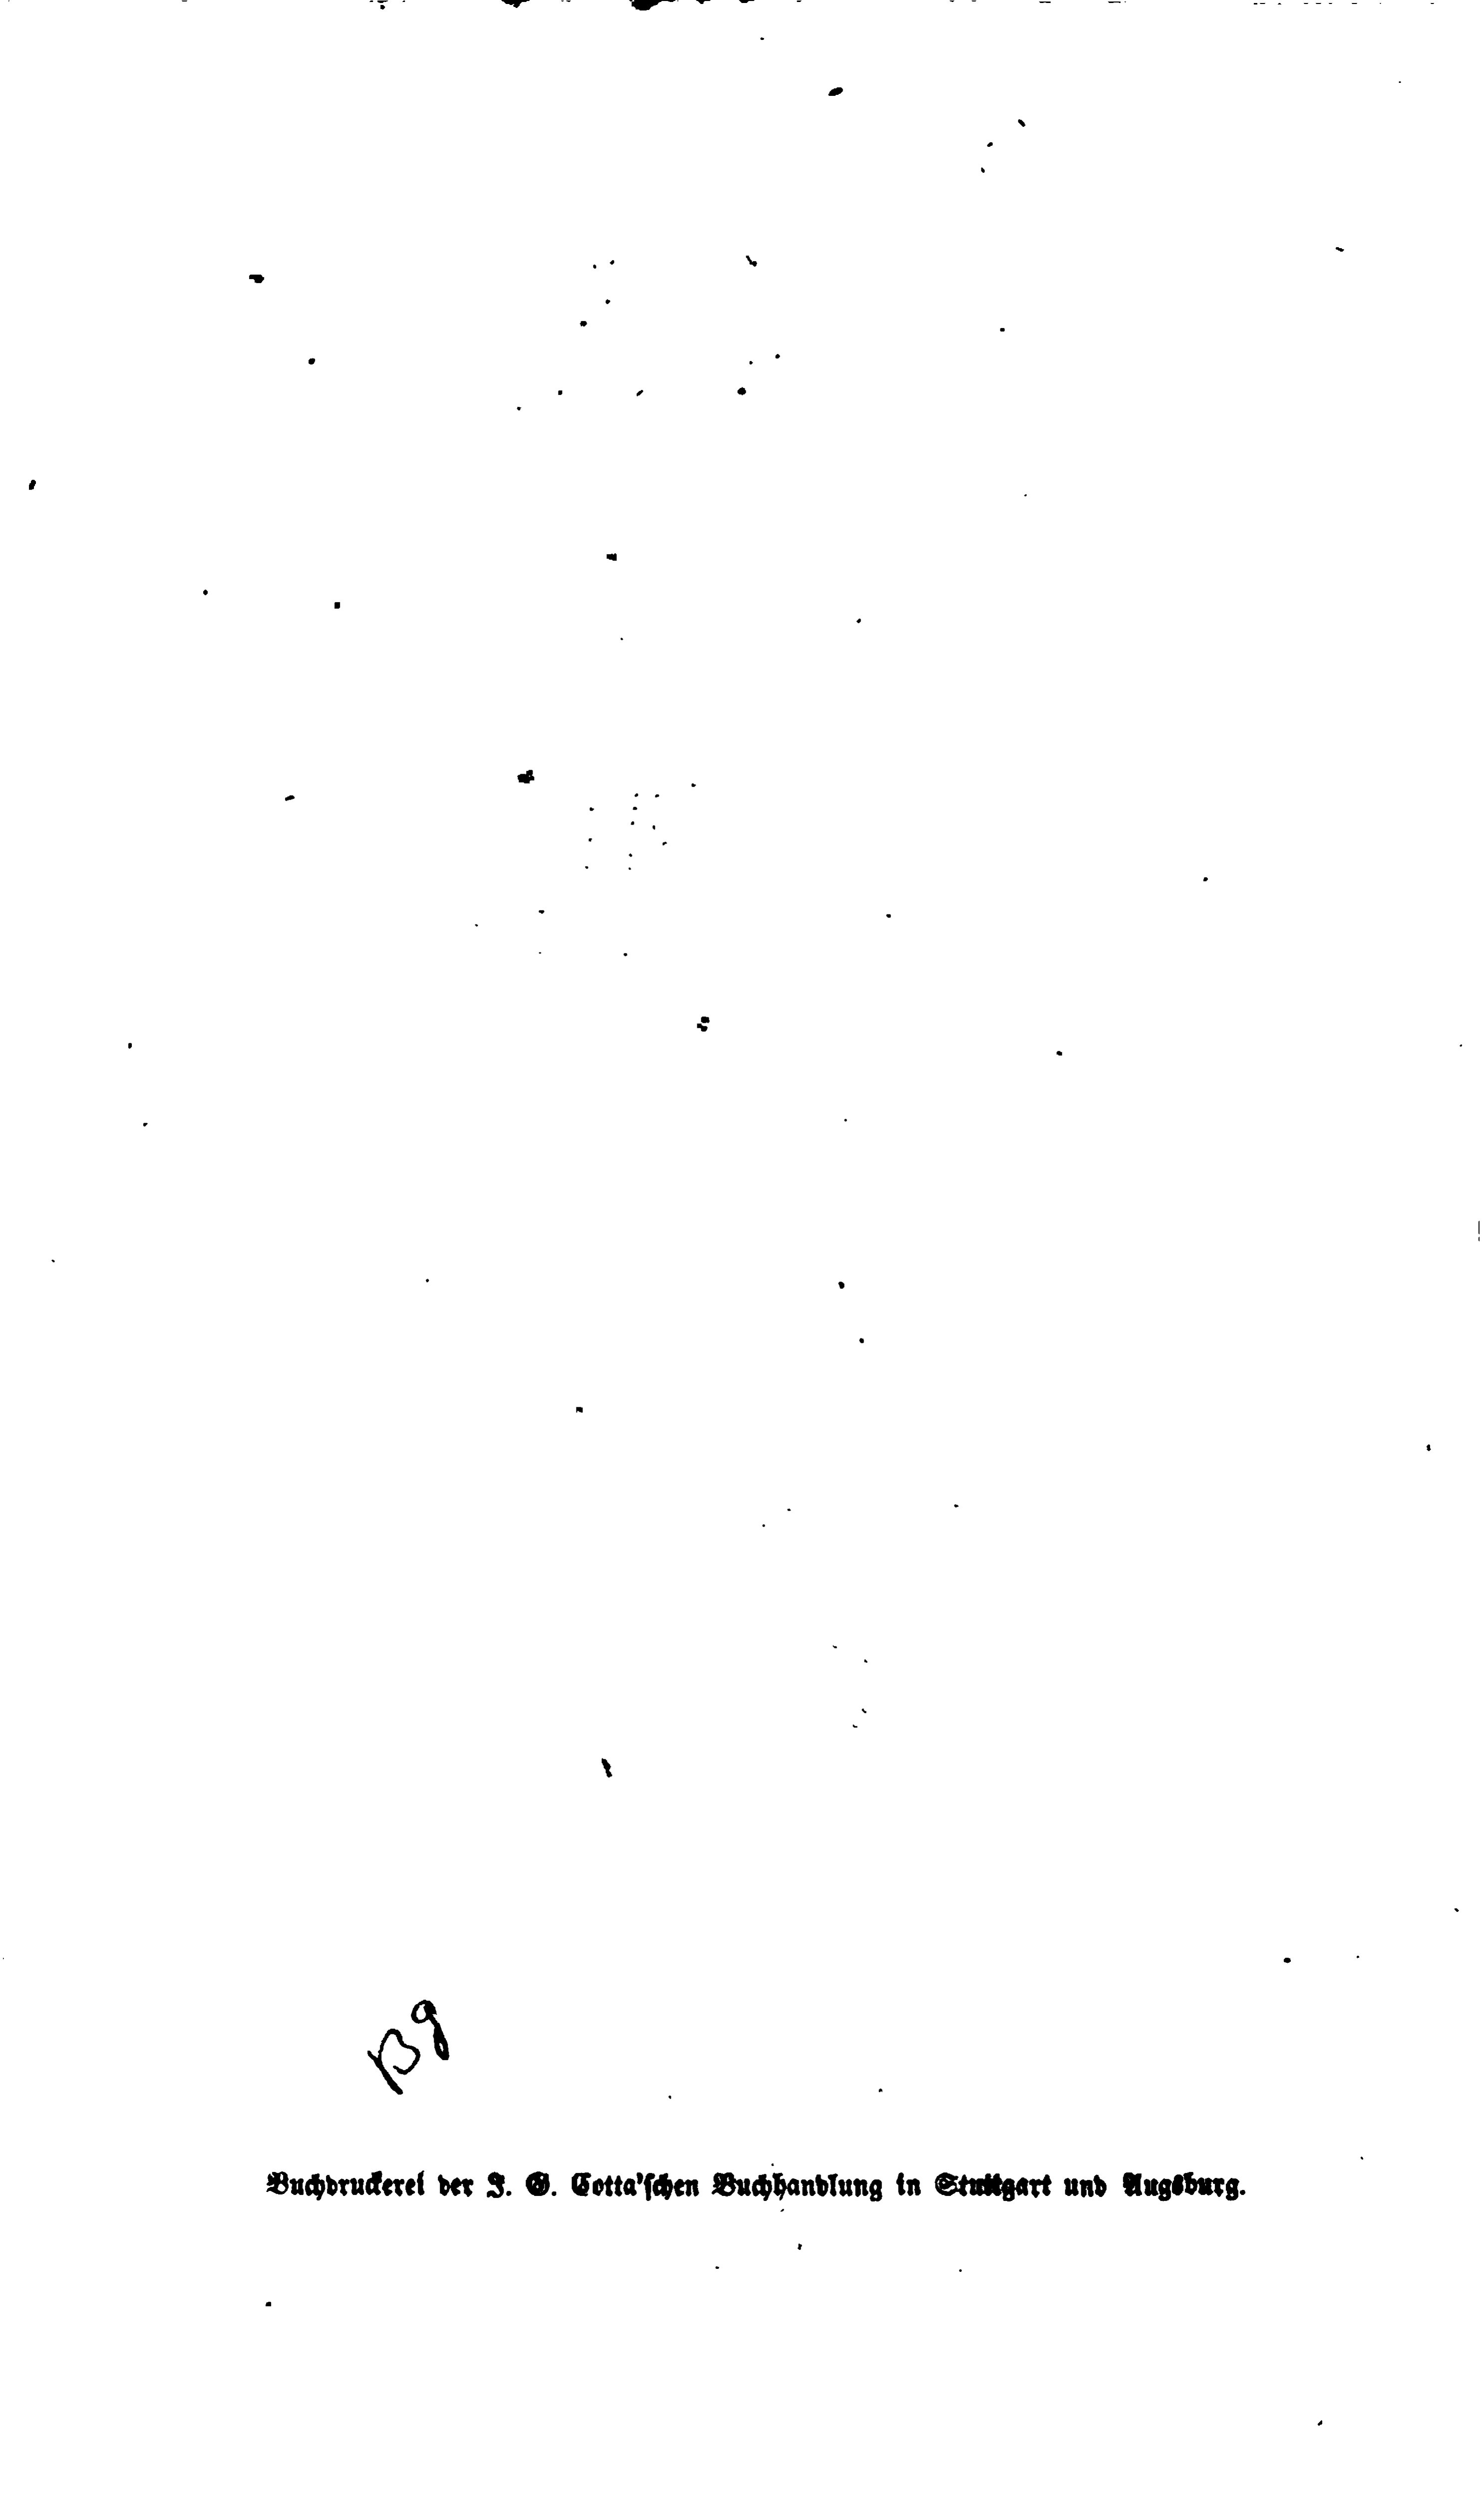 Buchdruckerei der J. G. Cotta'schen Buchhandlung in Stuttgart und Augsburg.